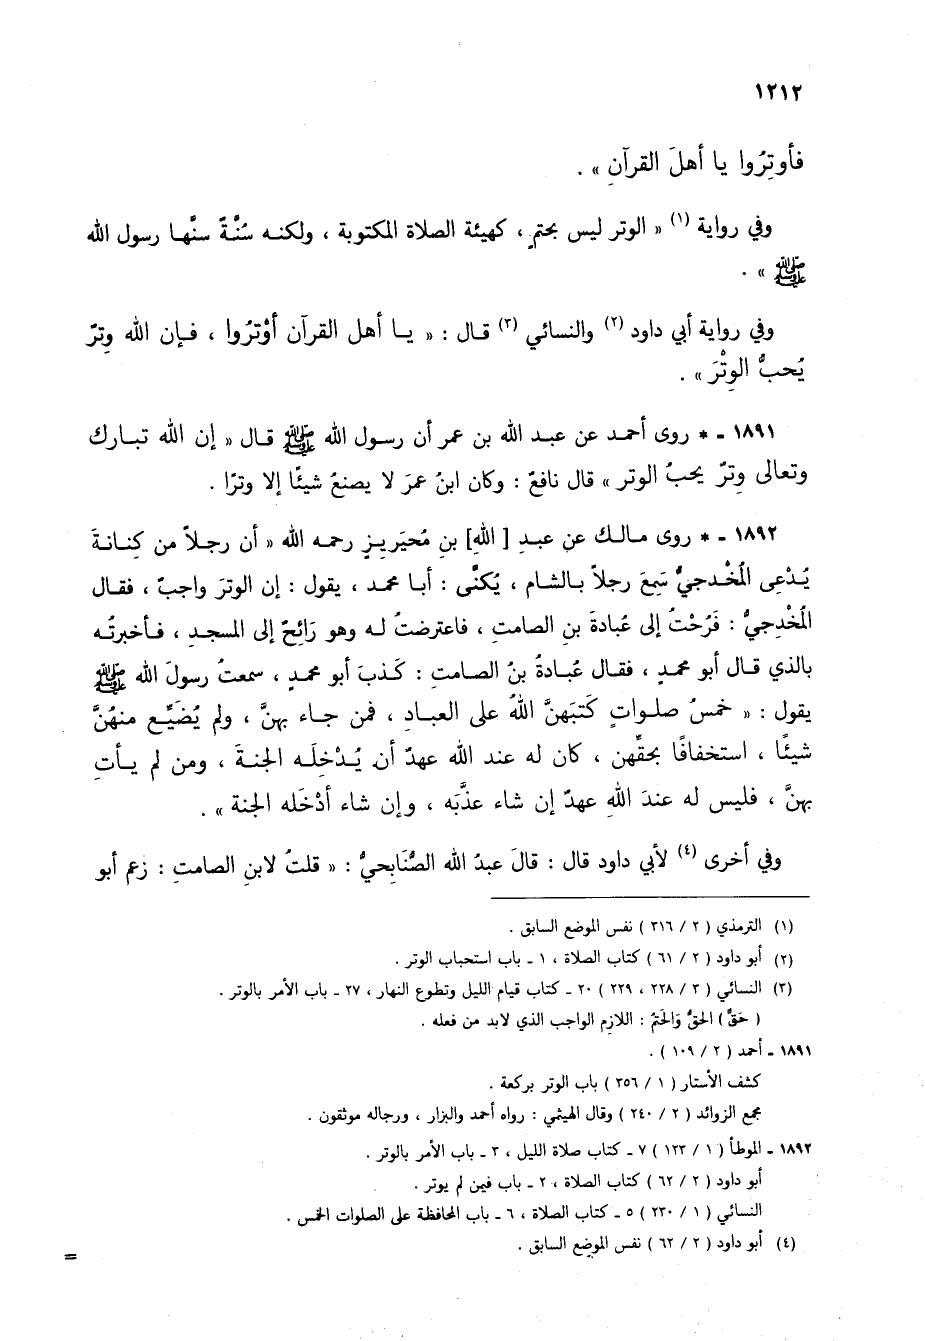 ١٢١٢
فأوتِرُوا يا أهلَ القرآنِ » .
وفي رواية (١) « الوتر ليس بحتمٍ ، كهيئة الصلاة المكتوبة ، ولكنه سُنَّةٌ سنَّها رسول الله
ﷺ » .
وفي رواية أبي داود (٢) والنسائي (٣) قال : « يا أهل القرآن أوْتِرُوا ، فإن الله وِترٌ
يُحبُّ الوِتْرَ » .
١٨٩١ - * روى أحمد عن عبد الله بن عمر أن رسول الله ﷺ قال « إن الله تبارك
وتعالى وِترٌ يحبُ الوتر » قال نافعٌ : وكان ابنُ عمرَ لا يصنعُ شيئًا إلا وترًا .
١٨٩٢ - * روى مالك عن عبدِ [ اللهِ] بنِ مُحيَريزٍ رحمه الله « أن رجلاً من كِنانةَ
يُدْعى المُخْدجيُّ سَمِعَ رجلاً بالشام ، يُكنَّى : أبا محمد ، يقول : إن الوترَ واجبٌ ، فقال
المُخْدِجيُّ : فَرُحْتُ إلى عُبادةَ بنِ الصامتِ ، فاعترضتُ له وهو رَائِحٌ إلى المسجدِ ، فأخبرتُه
بالذي قال أبو محمدٍ ، فقال عُبادةُ بنُ الصامتِ : كَذبَ أبو محمدٍ ، سمعتُ رسولَ الله ﷺ
يقول : « خمسُ صلواتٍ كَتبَهنَّ اللهُ على العبادِ ، فمن جاء بهنَّ ، ولم يُضَيِّع منهُنَّ
شيئًا ، استخفافًا بحقِّهن ، كان له عند الله عهدٌ أن يُدْخِلَه الجنةَ ، ومن لم يأتِ
بهنَّ ، فليس له عندَ اللهِ عهدٌ إن شاء عذَّبَه ، وإن شاء أدْخَله الجنة » .
وفي أخرى (٤) لأبي داود قال : قالَ عبدُ الله الصُّنَابحيُّ : « قلتُ لابنِ الصامتِ : زعم أبو
(١) الترمذي ( ٢ / ٣١٦ ) نفس الموضع السابق .
(٢) أبو داود ( ٢ / ٦١ ) كتاب الصلاة ، ١ - باب استحباب الوتر .
(٣) النسائي ( ٣ / ٢٢٨ ، ٢٢٩ ) ٢٠ - كتاب قيام الليل وتطوع النهار ، ٢٧ - باب الأمر بالوتر .
( حَقٌّ ) الحقُّ وَالحَتمُ : اللازم الواجب الذي لابد من فعله .
١٨٩١ - أحمد ( ٢ / ١٠٩ ) .
كشف الأستار ( ١ / ٣٥٦ ) باب الوتر بركعة .
مجمع الزوائد ( ٢ / ٢٤٠ ) وقال الهيثمي : رواه أحمد والبزار ، ورجاله موثقون .
١٨٩٢ - الموطأ ( ١ / ١٢٣ ) ٧ - كتاب صلاة الليل ، ٣ - باب الأمر بالوتر .
أبو داود ( ٢ / ٦٢ ) كتاب الصلاة ، ٢ - باب فيمن لم يوتر .
النسائي ( ١ / ٢٣٠ ) ٥ - كتاب الصلاة ، ٦ - باب المحافظة على الصلوات الخمس .
(٤) أبو داود ( ٢ / ٦٢ ) نفس الموضع السابق .
=